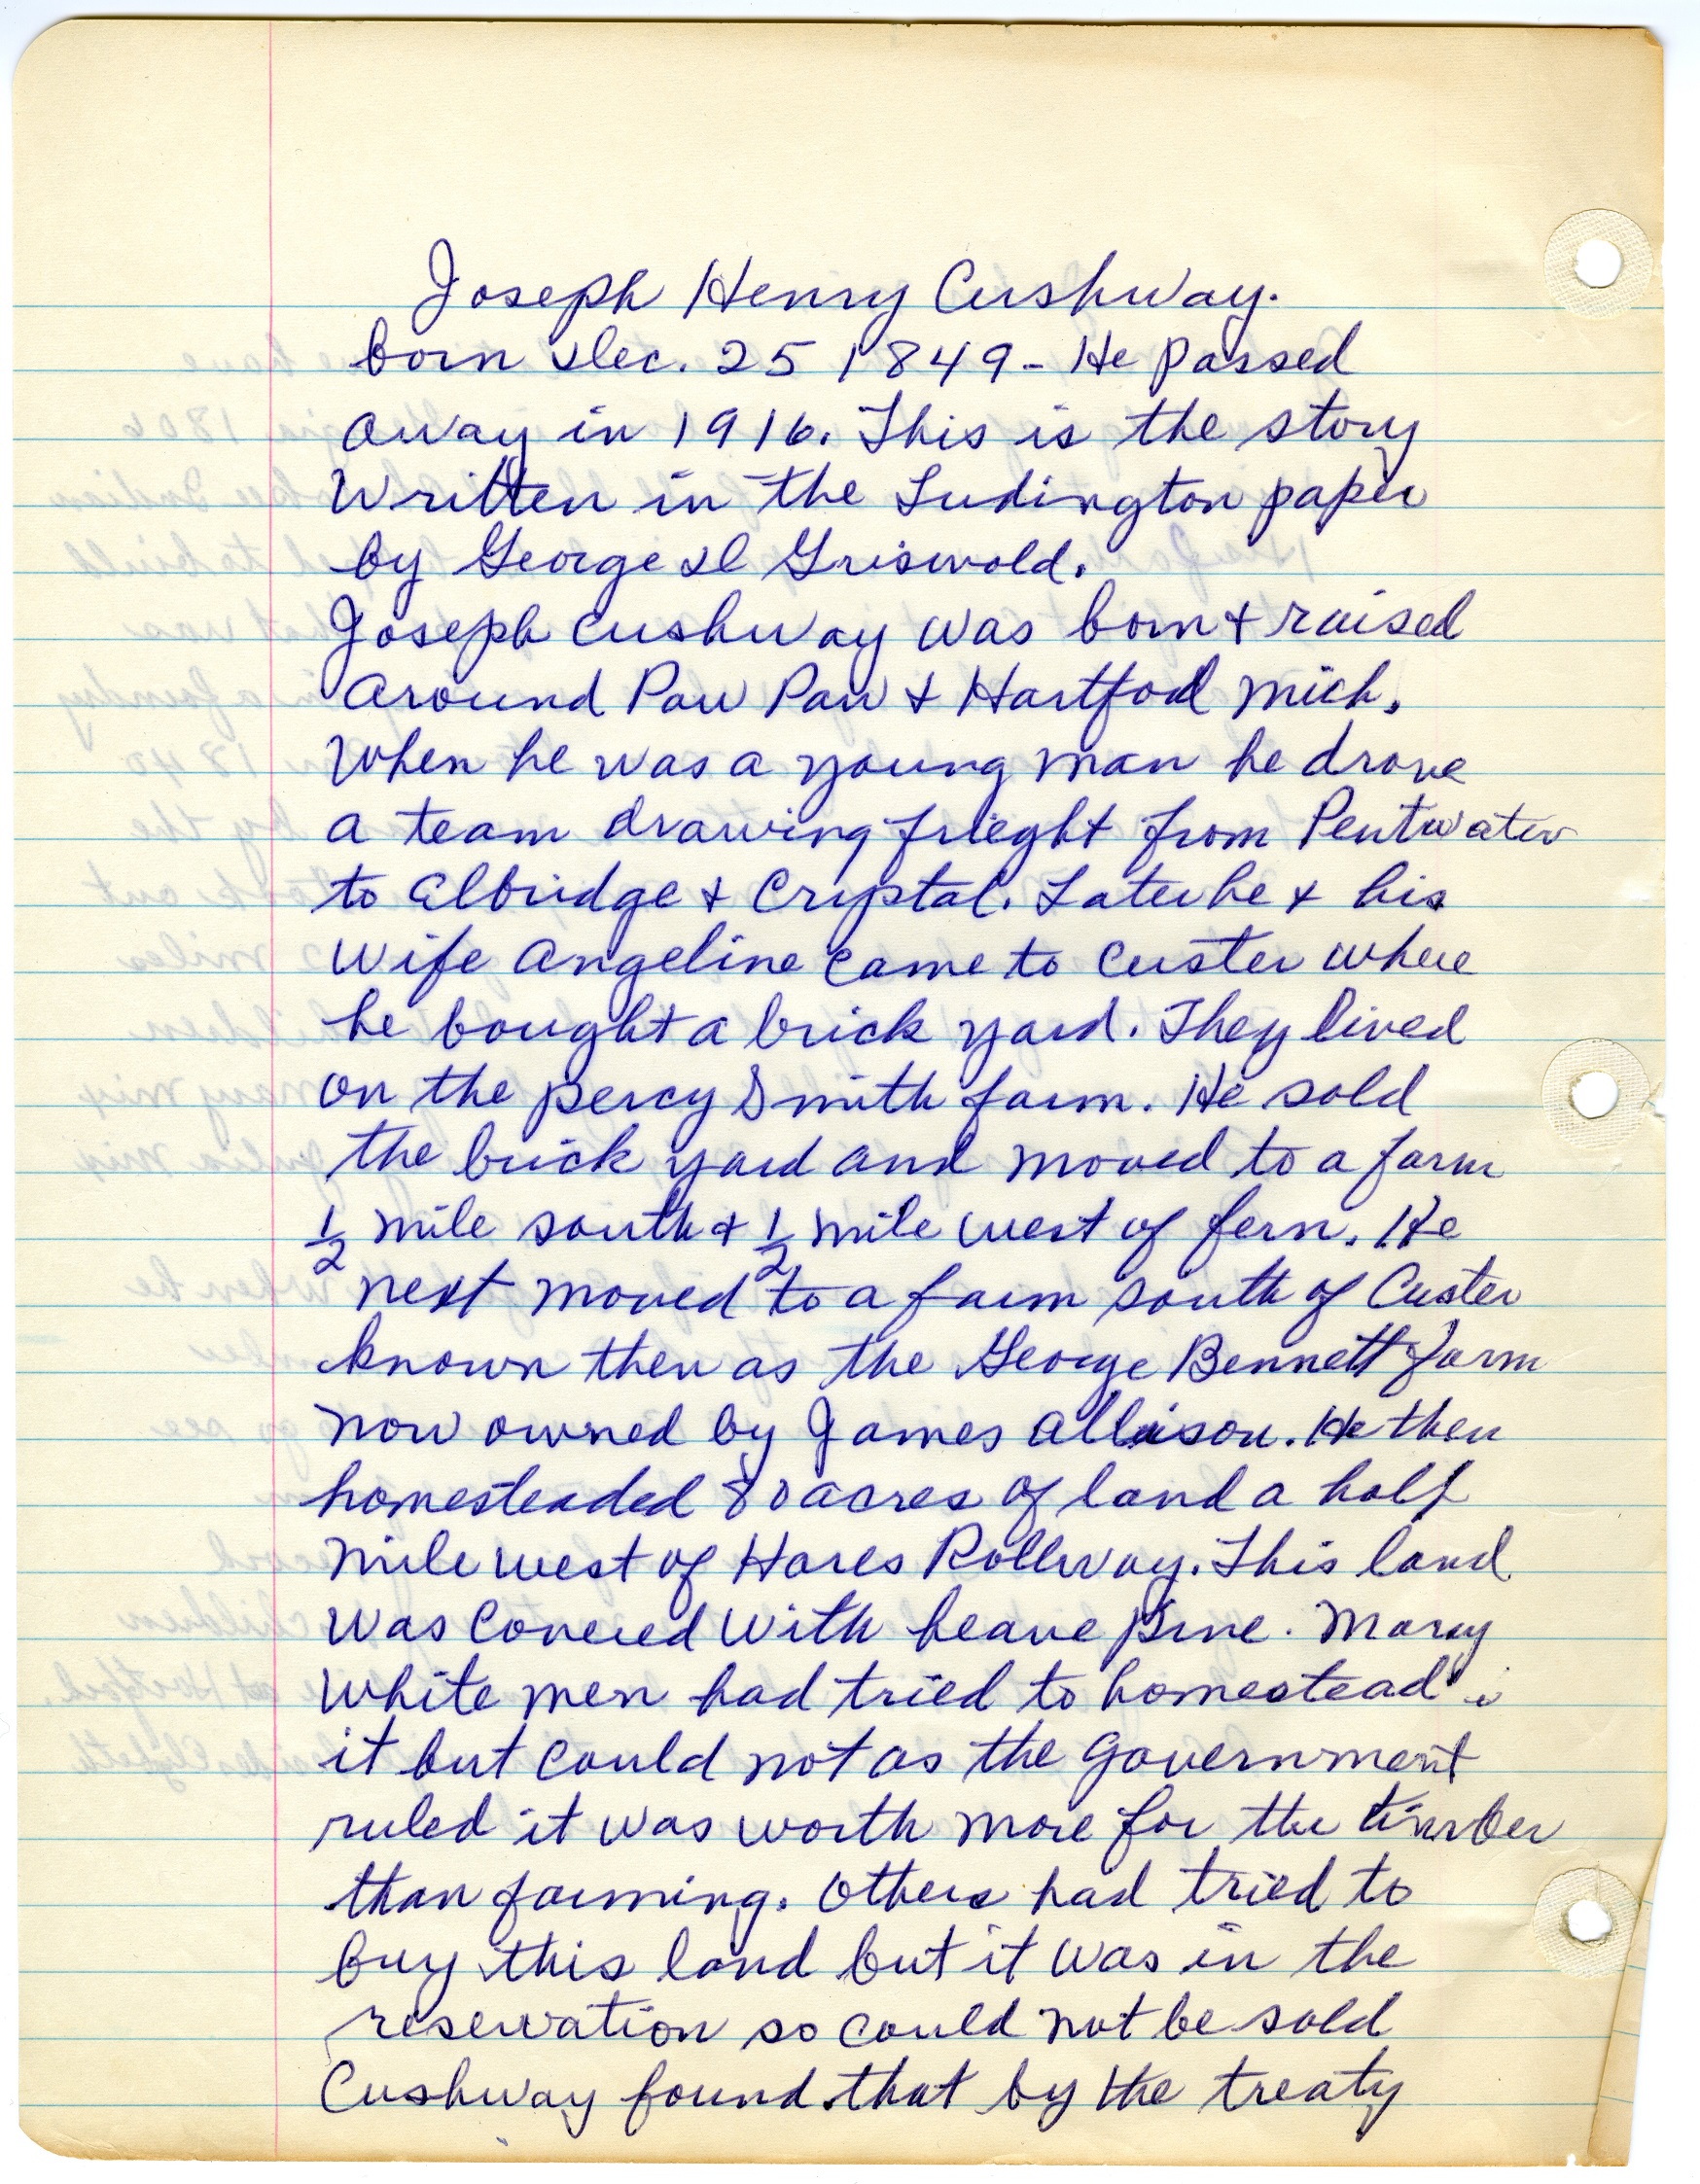 Joseph Henry Cushway.
born Dec. 25 1849 - He passed
away in 1916. This is the story
Written in the Ludington paper
by George D Griswold.
Joseph Cushway was born + raised
around Paw Paw + Hartfod Mich.
When he was a young man he drove
a team drawing frieght from Pentwater
to Elbridge + Crystal. Later he + his
wife Angeline came to Custer where
he bought a brick yard. They lived
on the percy Smith farm. He sold
the brick yard and moved to a farm
1/2 mile south + 1/2 mile west of fern. He
next moved to a farm south of Custer
known then as the George Bennett farm
now owned by James Allison. He then
homesteaded 80 acres of land a half
mile west of Hares Rollway. This land
was Covered with heave pine. Many
white men had tried to homestead
it but could not as the Government
ruled it was worth more for the timber
than farming. Others had tried to
buy this land but it was in the
reservation so could not be sold
Cushway found that by the treaty